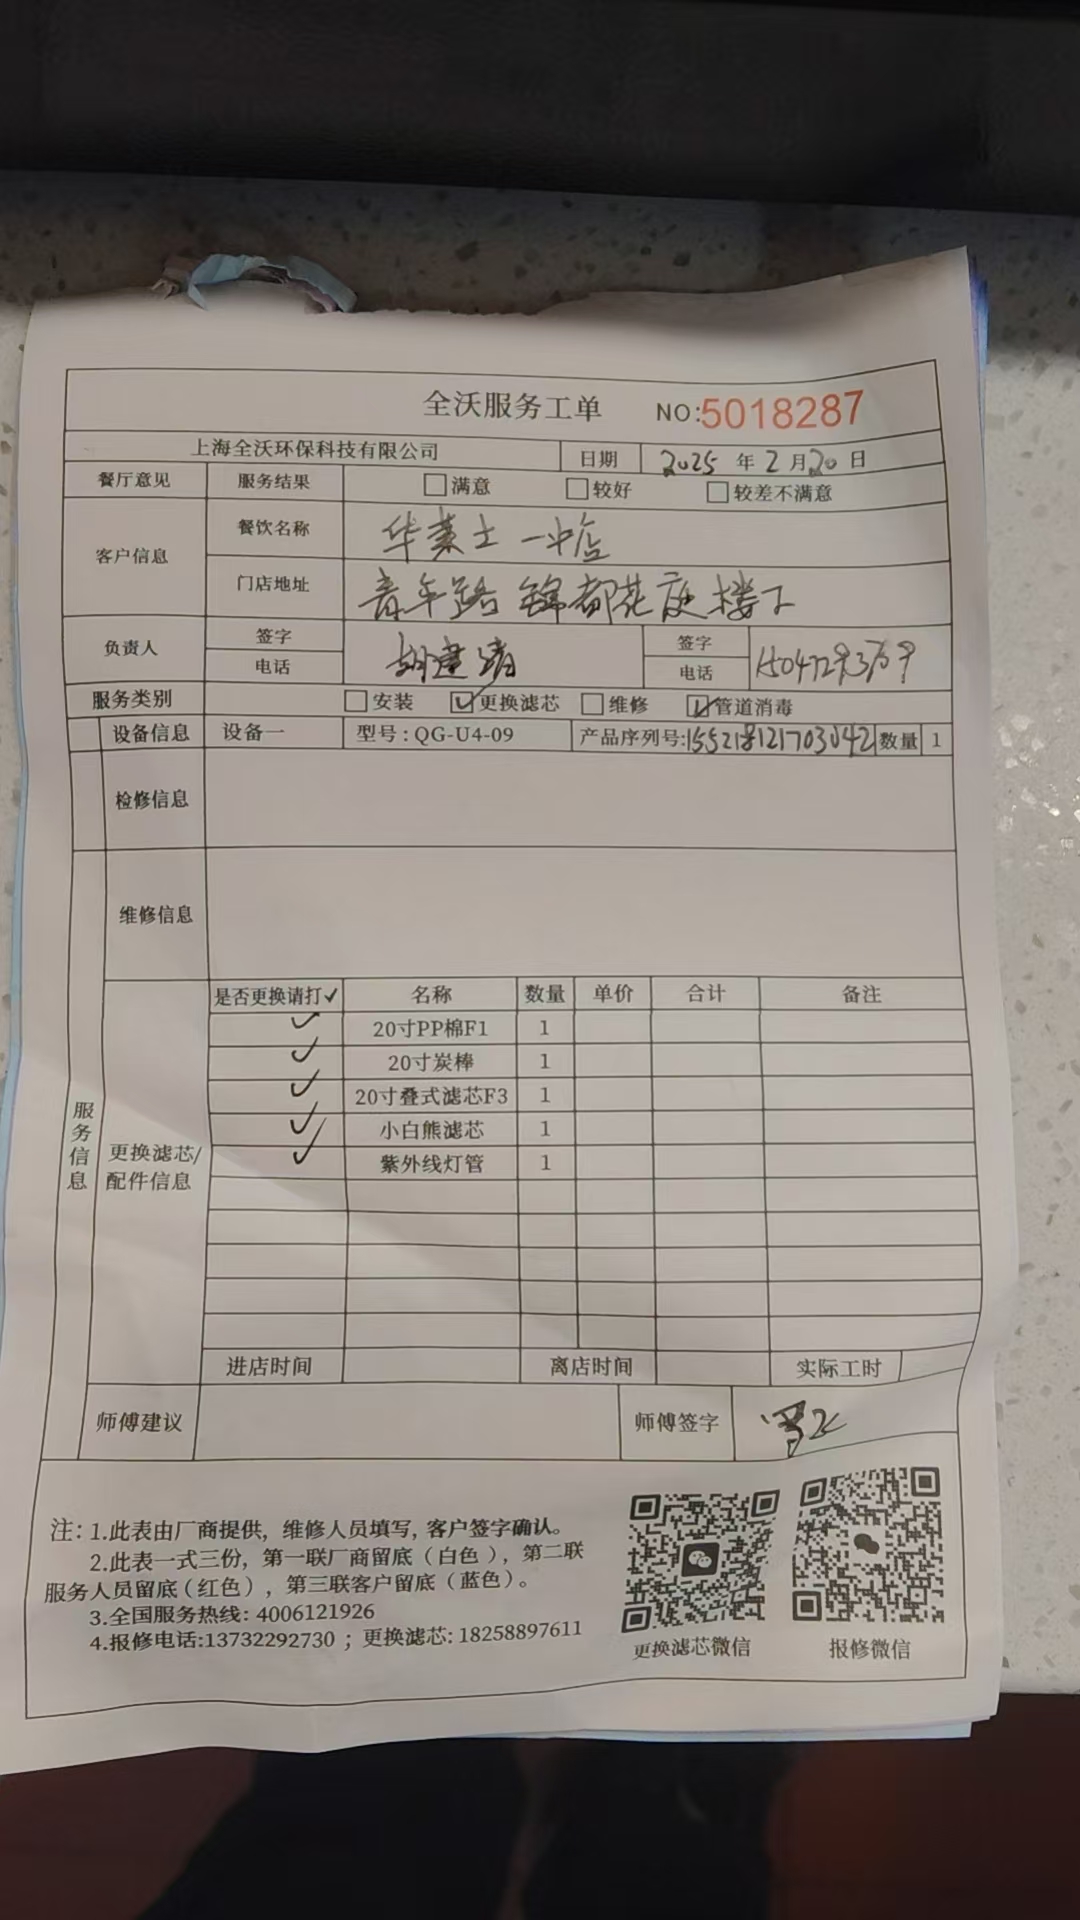 全沃服务工单 NO:5018287
上海全沃环保科技有限公司 日期 2025 年 2 月 20 日
餐厅意见 服务结果 □满意 □较好 □较差不满意
客户信息 餐饮名称 华莱士一中店
门店地址 青年路 锦都花庭楼下
负责人 签字 电话 胡建 签字 电话
服务类别 □安装 ☑更换滤芯 □维修 ☑管道消毒
设备信息 设备一 型号:QG-U4-09 产品序列号:155218121703042 数量 1
检修信息
维修信息
服务信息
更换滤芯/配件信息
是否更换请打✓ 名称 数量 单价 合计 备注
✓ 20寸PP棉F1 1
✓ 20寸炭棒 1
✓ 20寸叠式滤芯F3 1
✓ 小白熊滤芯 1
✓ 紫外线灯管 1
进店时间 离店时间 实际工时
师傅建议 师傅签字
注: 1.此表由厂商提供, 维修人员填写, 客户签字确认。
2.此表一式三份, 第一联厂商留底（白色）, 第二联
服务人员留底（红色）, 第三联客户留底（蓝色）。
3.全国服务热线: 4006121926
4.报修电话:13732292730 ; 更换滤芯: 18258897611
更换滤芯微信 报修微信